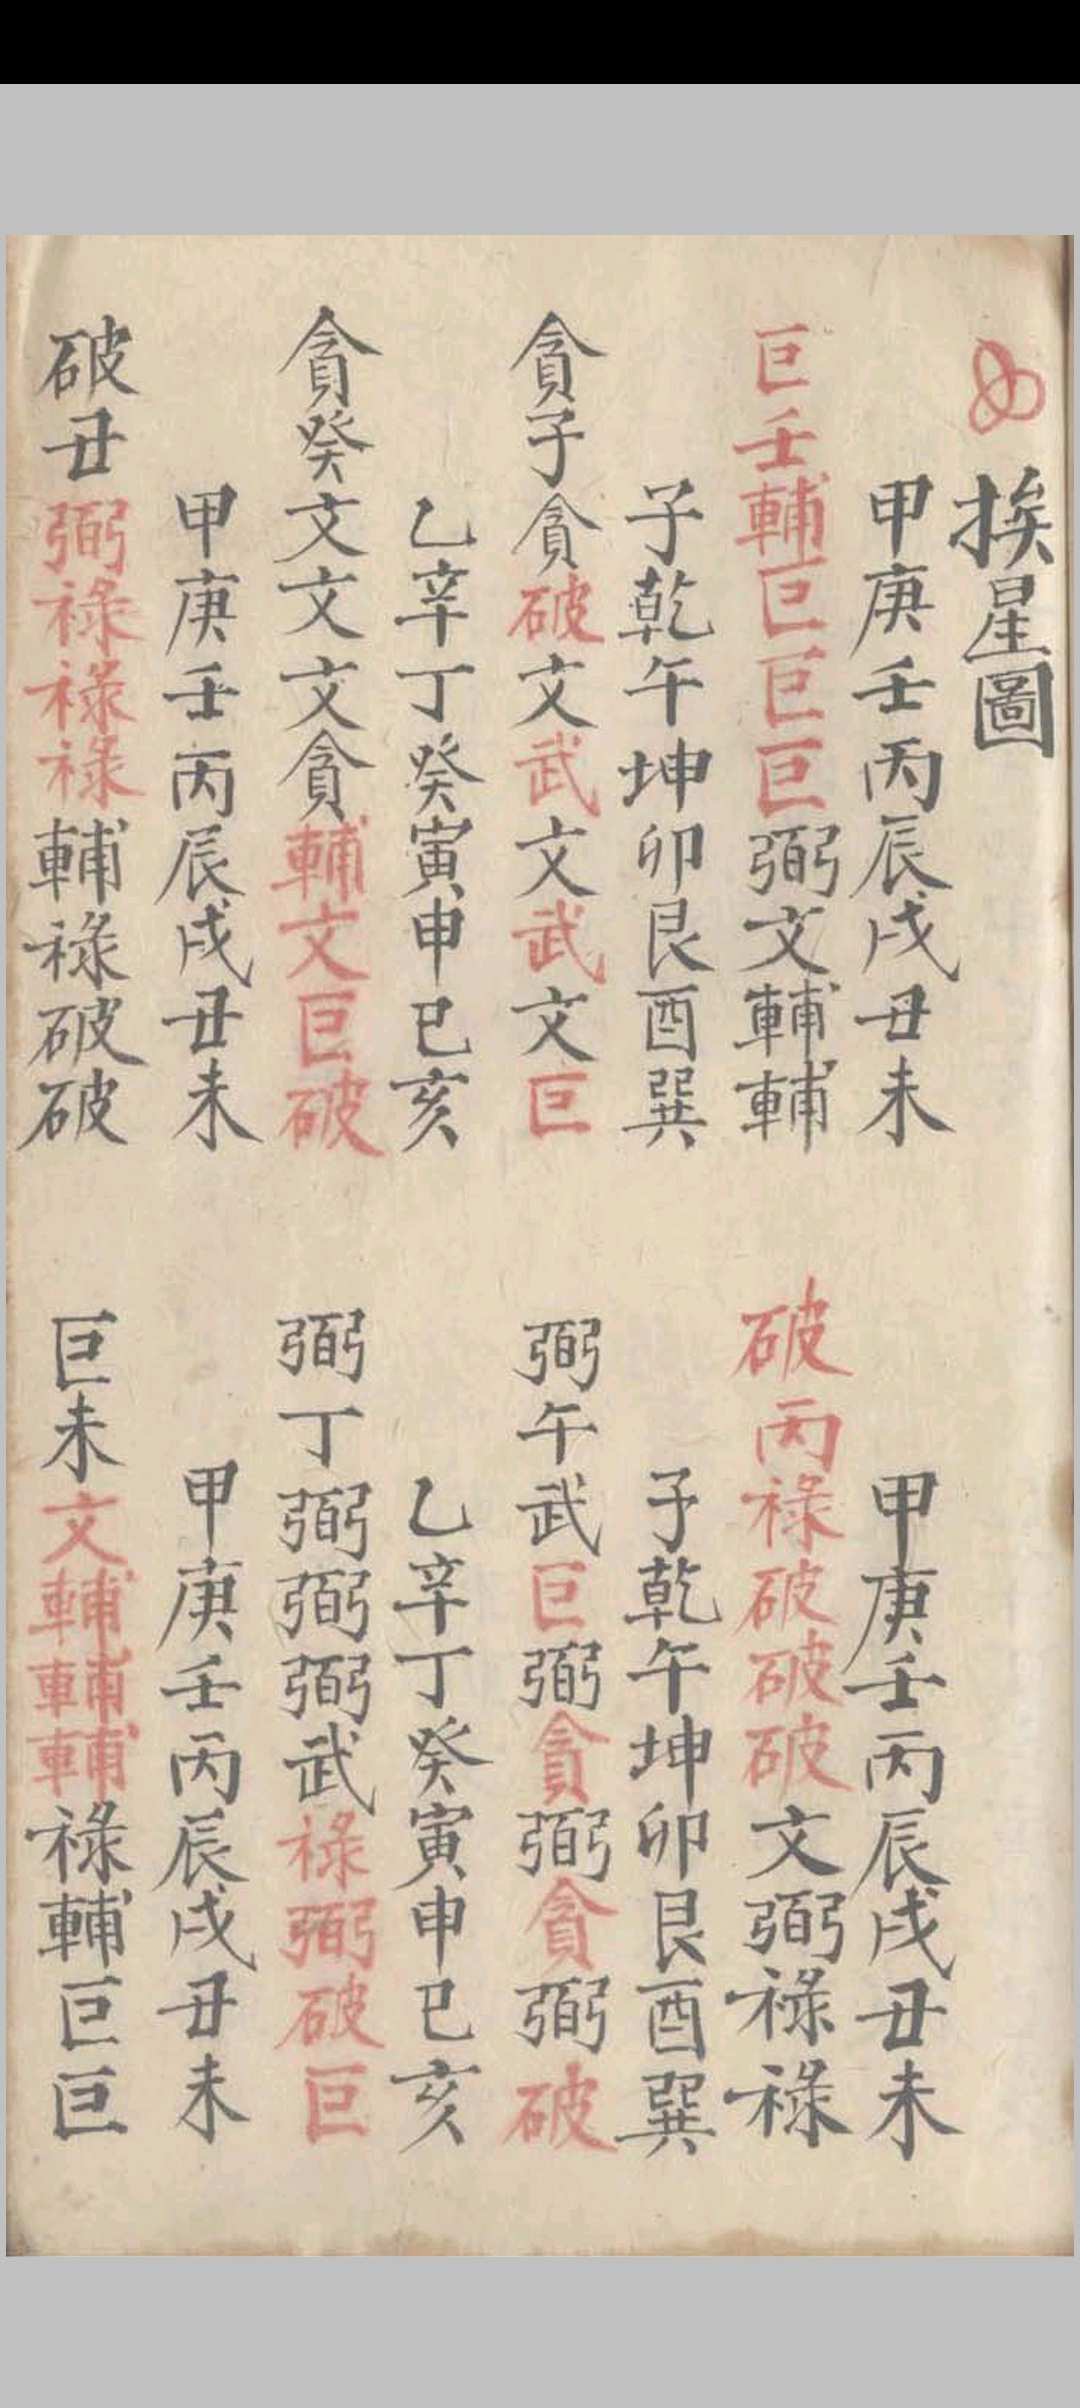 挨星圖
甲庚壬丙辰戌丑未
巨壬輔巨巨巨弼文輔輔
子乾午坤卯艮酉巽
貪子貪破文武文武文巨
乙辛丁癸寅申巳亥
貪癸文文文貪輔文巨破
甲庚壬丙辰戌丑未
破丑弼祿祿祿輔祿破破
甲庚壬丙辰戌丑未
破丙祿破破破文弼祿祿
子乾午坤卯艮酉巽
弼午武巨弼貪弼貪弼破
乙辛丁癸寅申巳亥
弼丁弼弼弼武祿弼破巨
甲庚壬丙辰戌丑未
巨未文輔輔輔祿輔巨巨